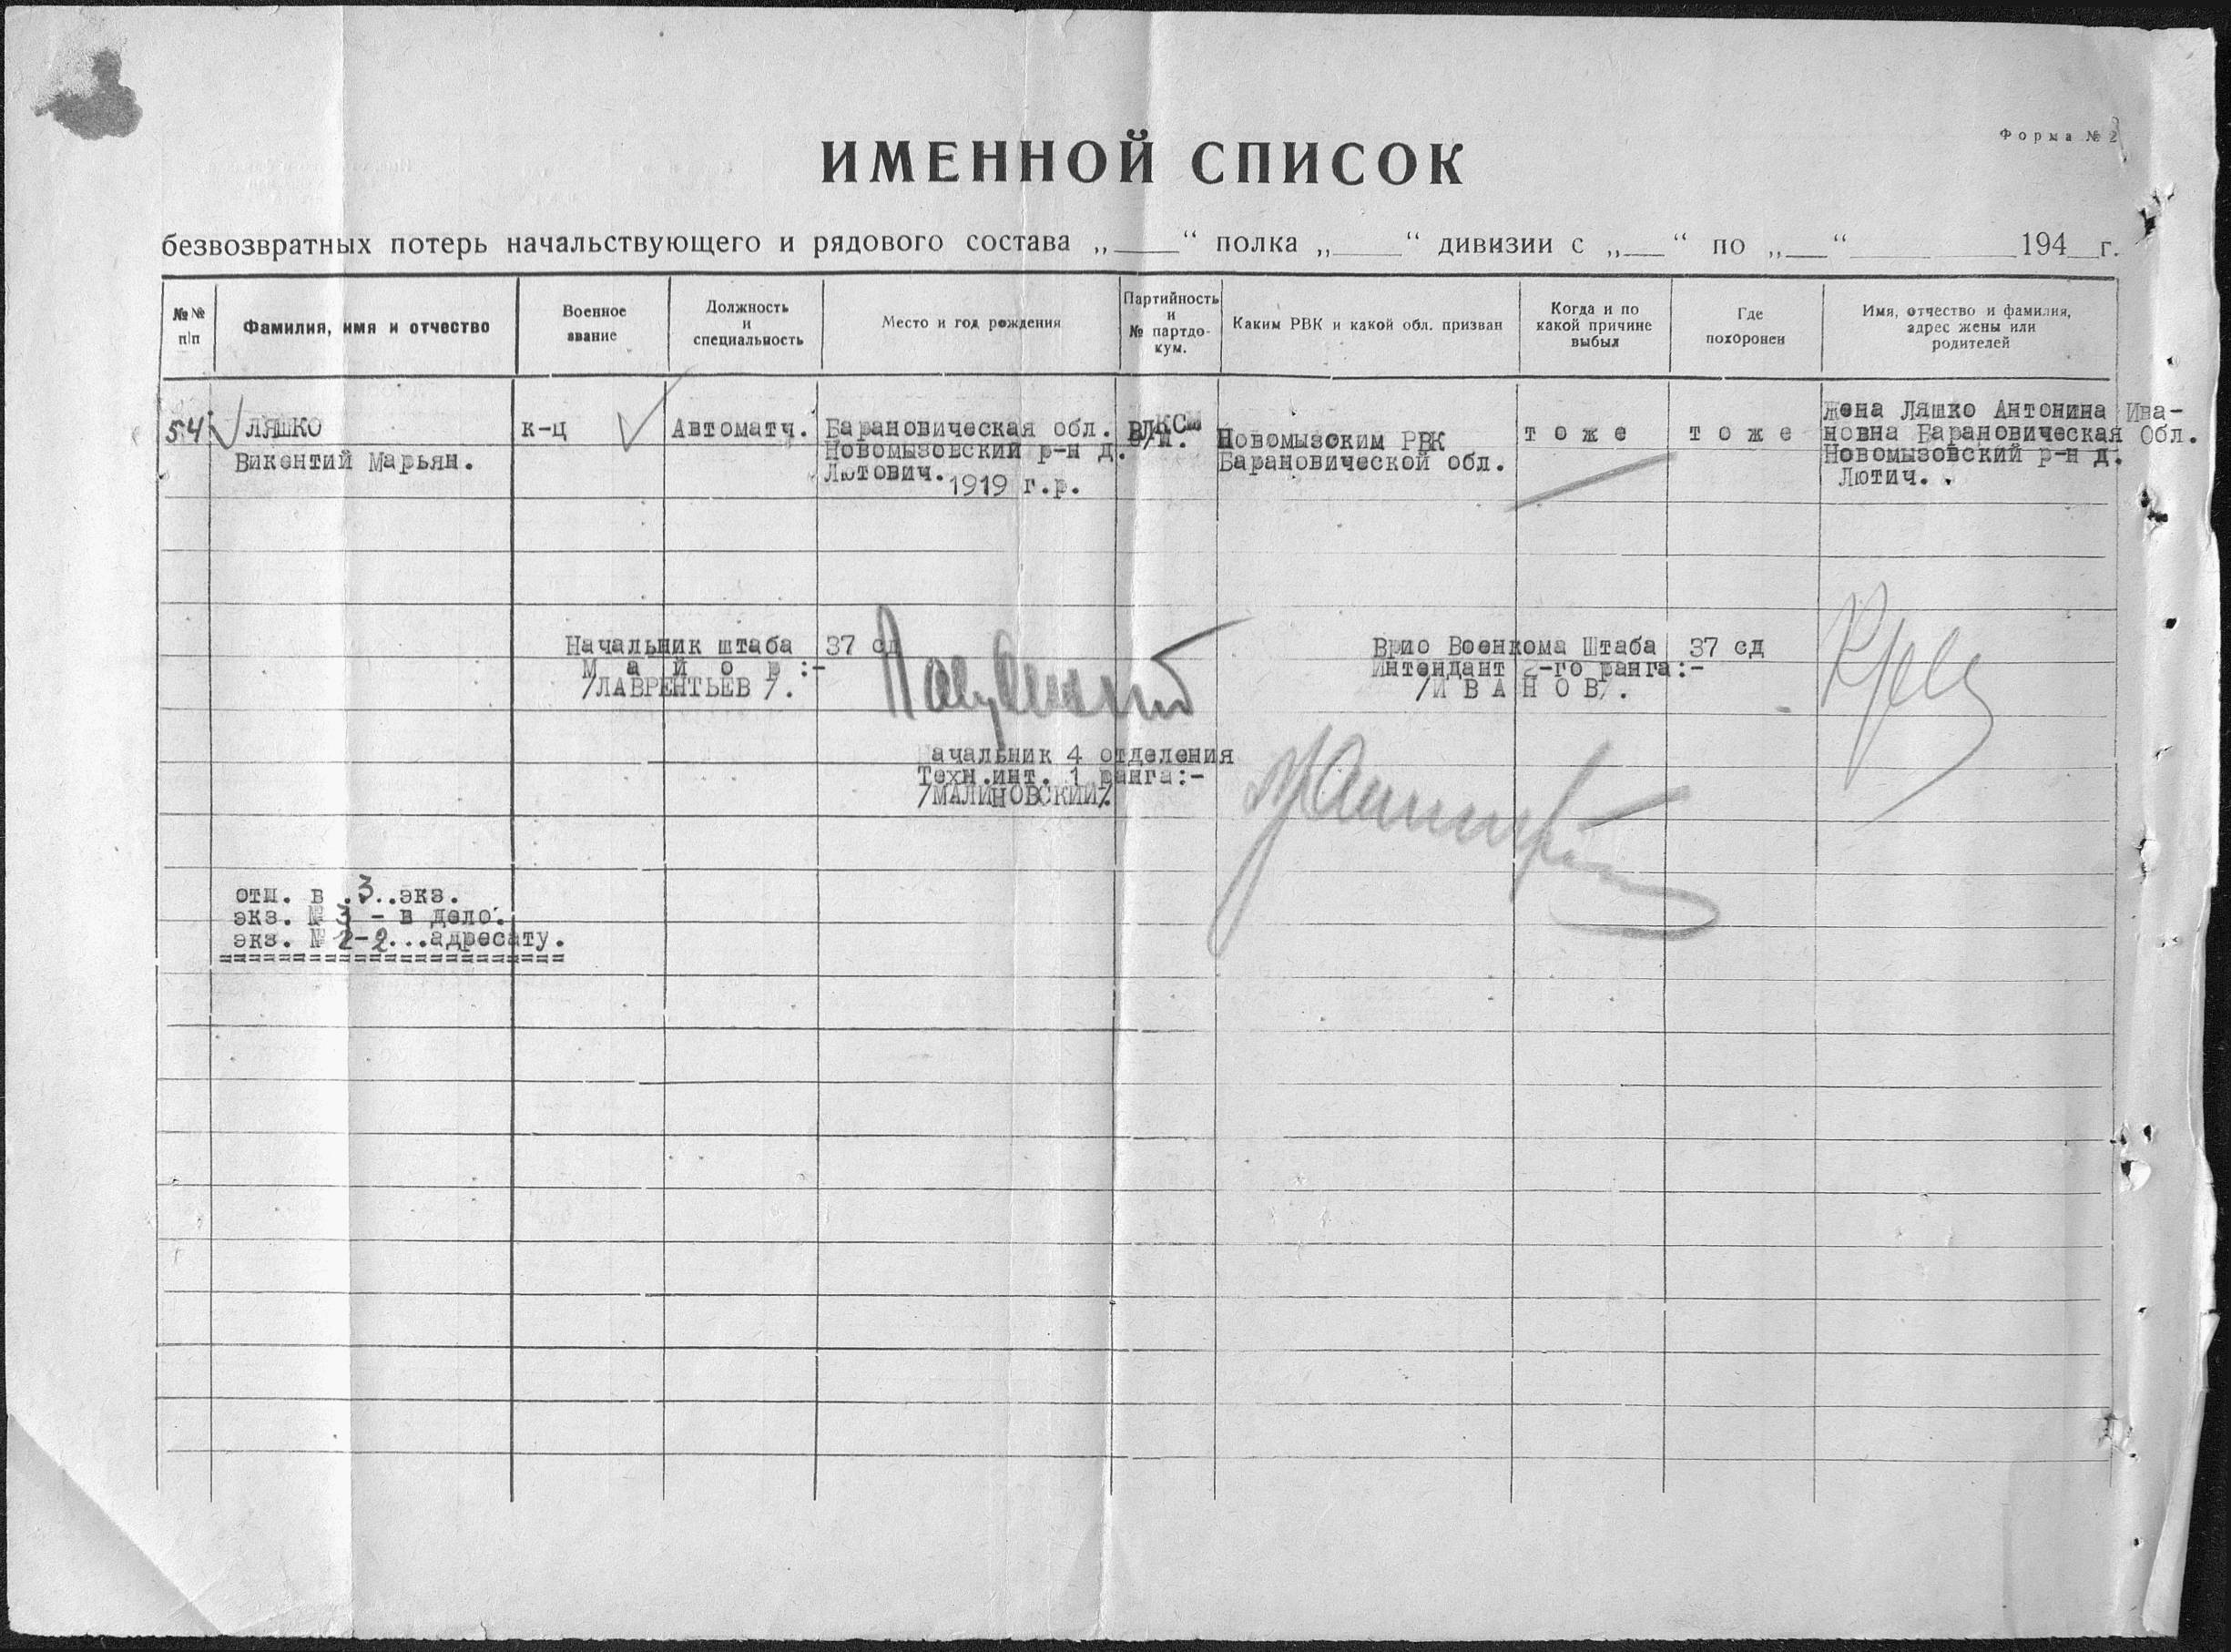 Форма № 2
ИМЕННОЙ СПИСОК
безвозвратных потерь начальствующего и рядового состава „____“ полка „____“ дивизии с „___“ по „___“ ____________ 194__г.
№№ п/п
Фамилия, имя и отчество
Военное
звание
Должность
и
специальность
Место и год рождения
Партийность
и
№ партдо-
кум.
Каким РВК и какой обл. призван
Когда и по
какой причине
выбыл
Где
похоронен
Имя, отчество и фамилия,
адрес жены или
родителей
54.
ЛЯШКО
Викентий Марьян.
к-ц
Автоматч.
Барановическая обл.
Новомызовский р-н д.
Лютович.
1919 г.р.
ВЛКСМ
Новомызским РВК
Барановической обл.
т о ж е
т о ж е
Жена Ляшко Антонина Ива-
новна Барановическая Обл.
Новомызовский р-н д.
Лютич.
Начальник штаба 37 сд
М а й о р :-
/ЛАВРЕНТЬЕВ /.
Врио Военкома Штаба 37 сд
Интендант 2-го ранга:-
/И В А Н О В/.
ачальник 4 отделения
Техн.инт. 1 ранга:-
/МАЛИНОВСКИЙ/.
отп. в .3..экз.
экз. № 3 - в дело.
экз. № 1-2...адресату.
=======================